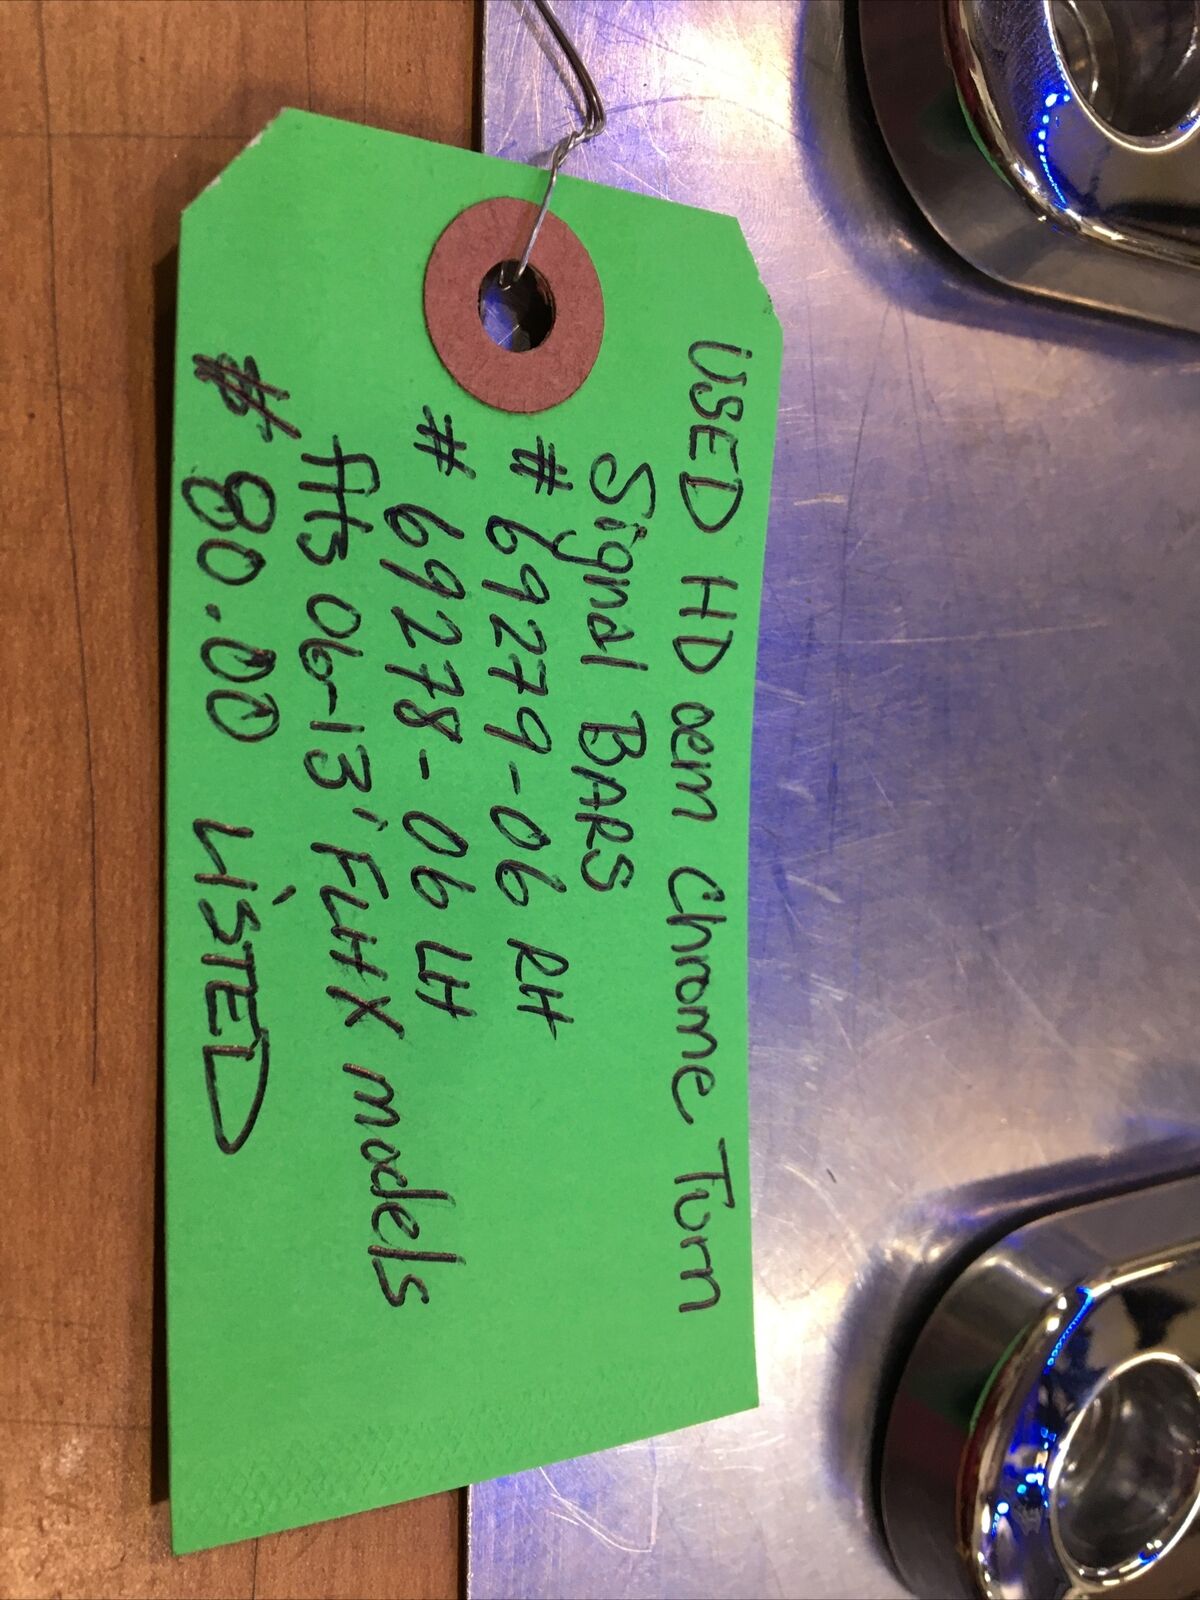 USED HD oem Chrome Turn
Signal BARS
# 69279-06 RH
# 69278-06 LH
fits 06-13' FLHX models
$ 80.00 LiSTED